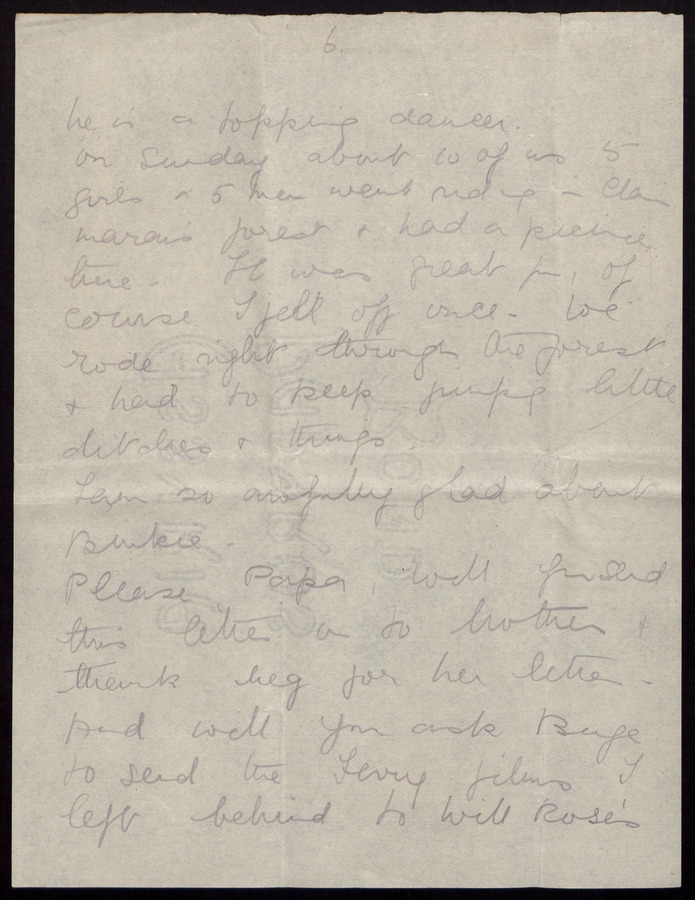 6.
he is a topping dancer.
On Sunday about 10 of us 5
girls & 5 men went riding in Clair
marais forest & had a picnic
there - It was great fun, of
course I fell off once - We
rode right through the forest
& had to keep jumping little
ditches & things.
I am so awfully glad about
Binkie -
Please Papa, will you send
this letter on to Mother &
thank Meg for her letter -
And will you ask
to send the films I
left behind to Will Rose's